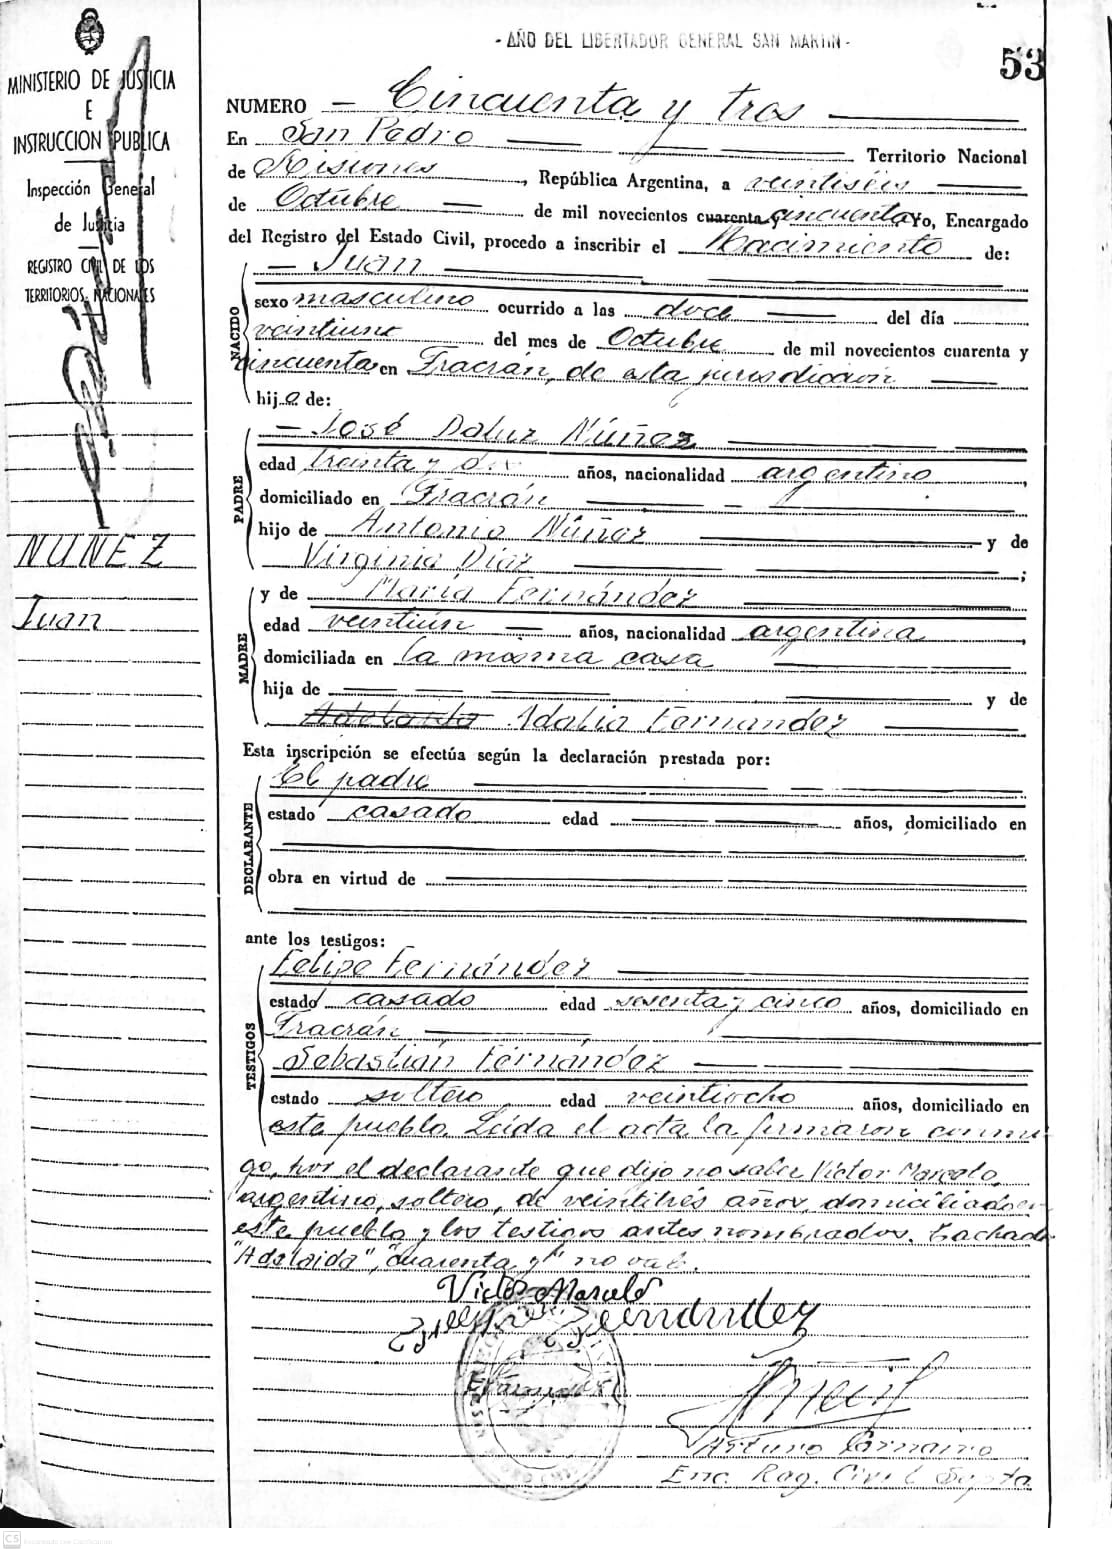 - AÑO DEL LIBERTADOR GENERAL SAN MARTIN -
53
MINISTERIO DE JUSTICIA
E
INSTRUCCION PUBLICA
Inspección General
de Justicia
REGISTRO CIVIL DE LOS
TERRITORIOS NACIONALES
NUÑEZ
Juan
NUMERO — Cincuenta y tres
En San Pedro Territorio Nacional
de Misiones, República Argentina, a veintiséis
de Octubre de mil novecientos cuarenta y cincuenta Yo, Encargado
del Registro del Estado Civil, procedo a inscribir el Nacimiento de:
NACIDO
— Juan
sexo masculino ocurrido a las doce del día
veintiuno del mes de Octubre de mil novecientos cuarenta y
cincuenta en Fracrán, de esta jurisdicción
hijo de:
PADRE
— José Daluz Núñez
edad treinta y dos años, nacionalidad argentino,
domiciliado en Fracrán
hijo de Antonio Núñez y de
Virginia Diaz ;
MADRE
y de María Fernández
edad veintiún años, nacionalidad argentina,
domiciliada en la misma casa
hija de y de
Adelaida Idalia Fernandez
Esta inscripción se efectúa según la declaración prestada por:
DECLARANTE
El padre
estado casado edad años, domiciliado en
obra en virtud de
ante los testigos:
TESTIGOS
Felipe Fernández
estado casado edad sesenta y cinco años, domiciliado en
Fracrán
Sebastián Fernández
estado soltero edad veintiocho años, domiciliado en
este pueblo. Leída el acta la firmaron conmi-
go, por el declarante que dijo no saber Víctor Marcelo,
argentino, soltero, de veintitrés años, domiciliado en
este pueblo y los testigos antes nombrados. Tachado
"Adelaida", "cuarenta y" no vale.
Victor Marcelo
Fernández
Arturo
Enc. Reg. Civil
CS